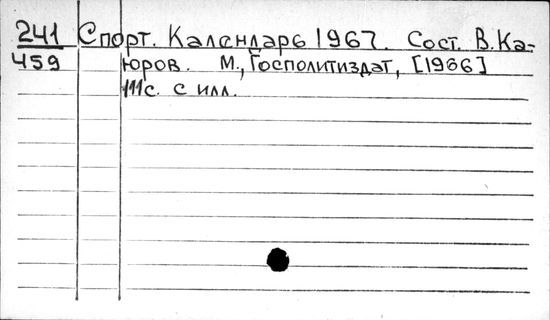 241 Спорт. Календарь 1967. Сост. В. Ка-
459 юров. М., Госполитиздат, [1966]
111 с. с илл.